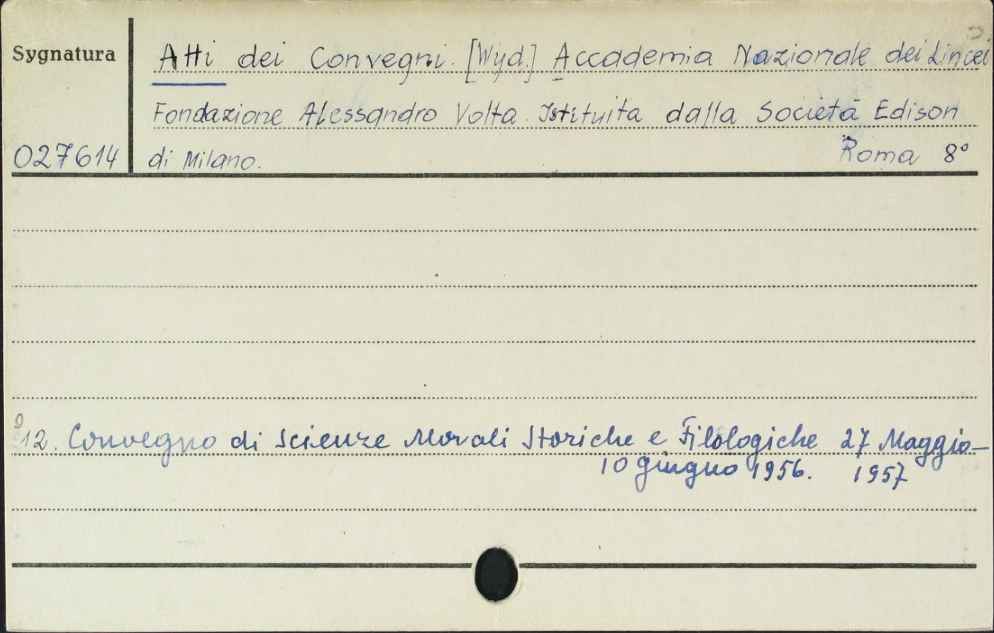 Sygnatura
Atti dei Convegni. [Wyd.] Accademia Nazionale dei Lincei
Fondazione Alessandro Volta. Istituita dalla Societā Edison
027614 di Milano. Roma 8°
12. Convegno di scienze Morali Storiche e Filologiche 27 Maggio-
10 giugno 1956. 1957